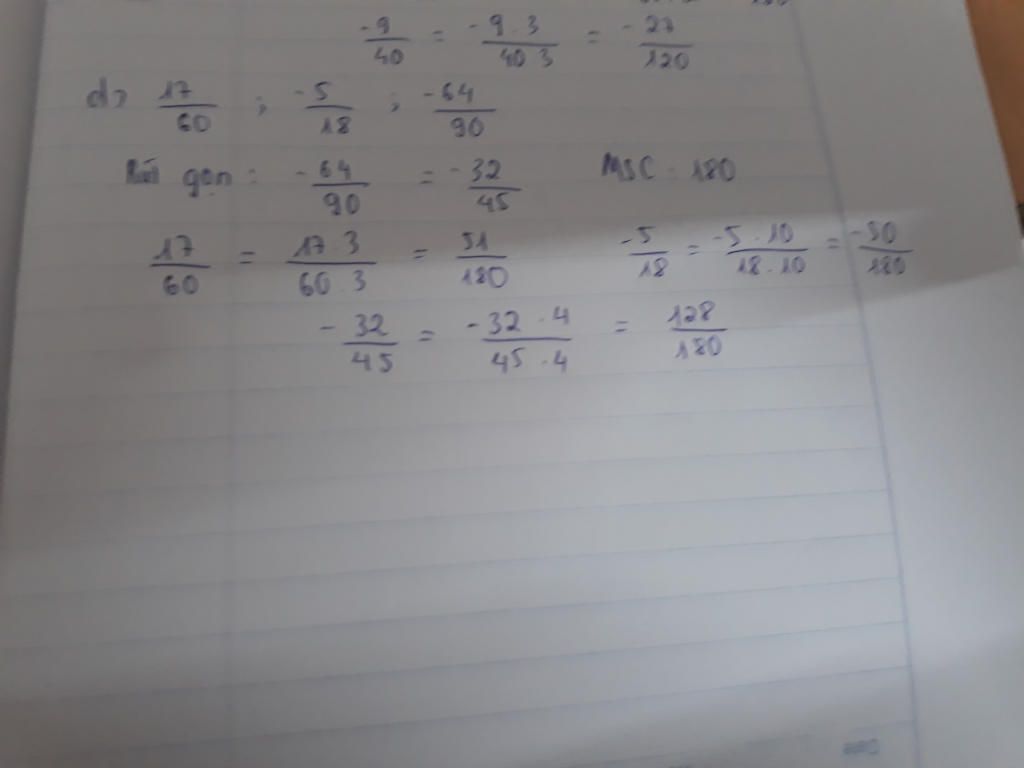 -9/40 = -9.3/40 3 = -27/120
d> 17/60 ; -5/18 ; -64/90
Rút gọn : -64/90 = -32/45 MSC : 180
17/60 = 17.3/60.3 = 51/180 -5/18 = -5.10/18.10 = -50/180
-32/45 = -32.4/45.4 = 128/180